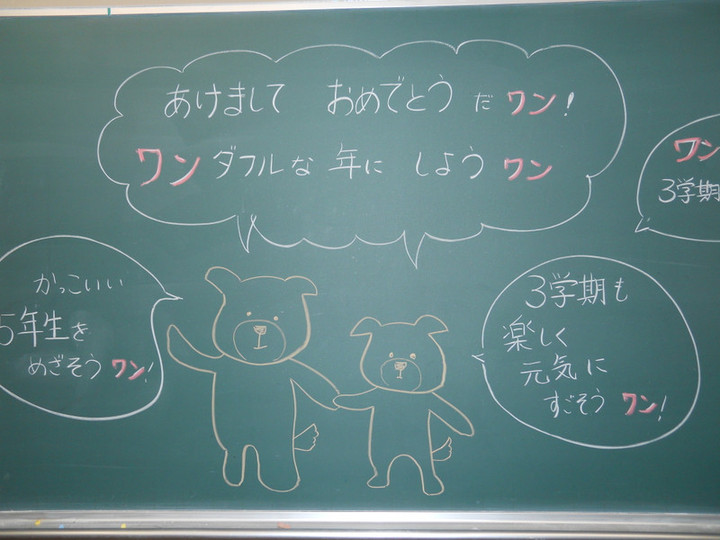 あけまして おめでとう だ ワン!
ワンダフルな 年に しよう ワン
かっこいい
5年生を
めざそう ワン!
3学期も
楽しく
元気に
すごそう ワン!
ワン
3学期